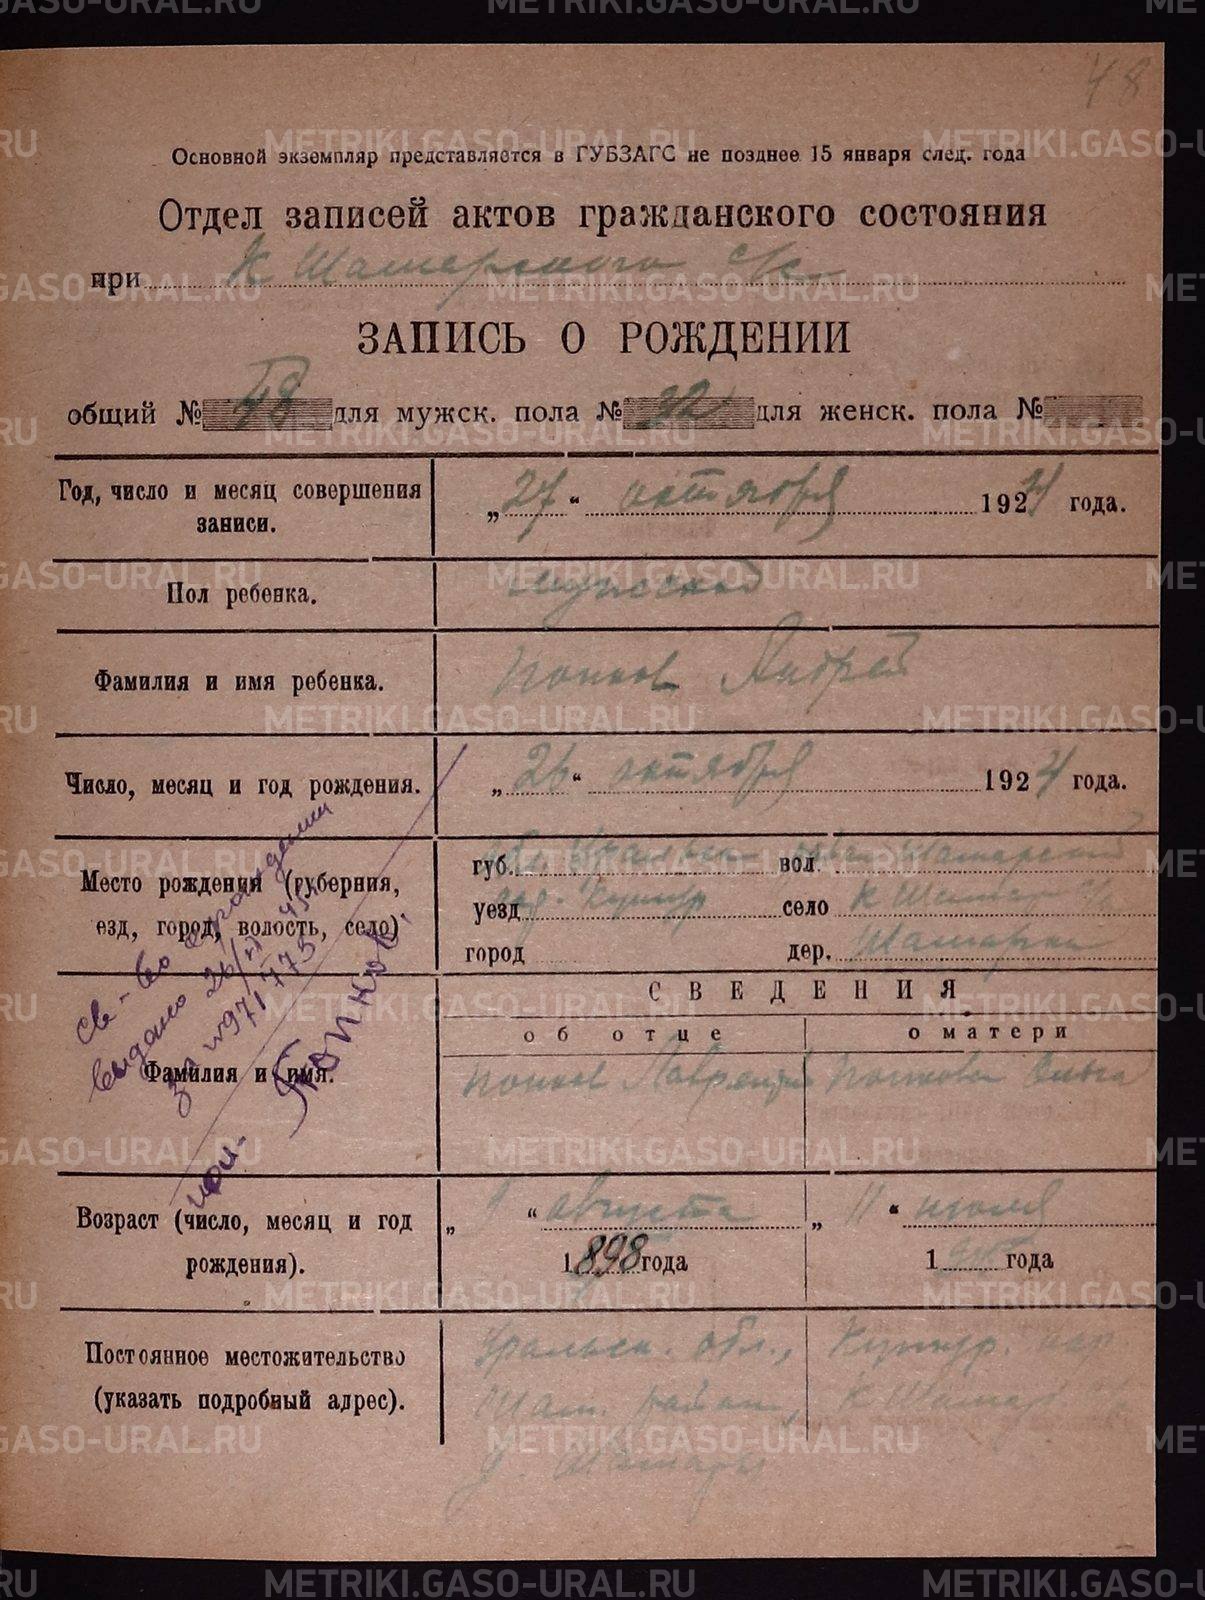 48
Основной экземпляр представляется в ГУБЗАГС не позднее 15 января след. года
Отдел записей актов гражданского состояния
при К Шамарского с/с
ЗАПИСЬ О РОЖДЕНИИ
общий № 48 для мужск. пола № 32 для женск. пола №
Год, число и месяц совершения записи.
„27“ октября 1924 года.
Пол ребенка.
мужской
Фамилия и имя ребенка.
Попков Андрей
Число, месяц и год рождения.
„26“ октября 1924 года.
Место рождения (губерния, езд, город, волость, село)
губ. обл. Уральск вол. Шамарский
уезд Кунгур село К Шамар с/с
город дер. Шамарка
СВЕДЕНИЯ
об отце
о матери
Фамилия и имя.
Попков Лаврентий
Попкова Ольга
Св-во о рождении
выдано 26/
за № 971773
Попков.
Возраст (число, месяц и год рождения).
„1“ августа 1898 года
„11“ июля 1 года
Постоянное местожительство (указать подробный адрес).
Уральск. обл., Кунгур.
Шам. район, К Шамар
д. Шамары
METRIKI.GASO-URAL.RU